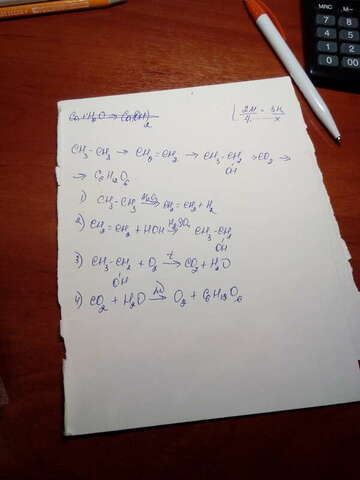 MRC M- M+
7 8 9
4 5 6
1 2 3
0
Ca+H₂O → Ca(OH)₂
CH₃-CH₃ → CH₂=CH₂ → CH₃-CH₂ → CO₂ →
OH
→ C₆H₁₂O₆
1) CH₃-CH₃ → CH₂=CH₂+H₂
2) CH₂=CH₂+HOH H₂SO₄→ CH₃-CH₂
OH
3) CH₃-CH₂ + O₂ t→ CO₂+H₂O
OH
4) CO₂ + H₂O → O₂ + C₆H₁₂O₆